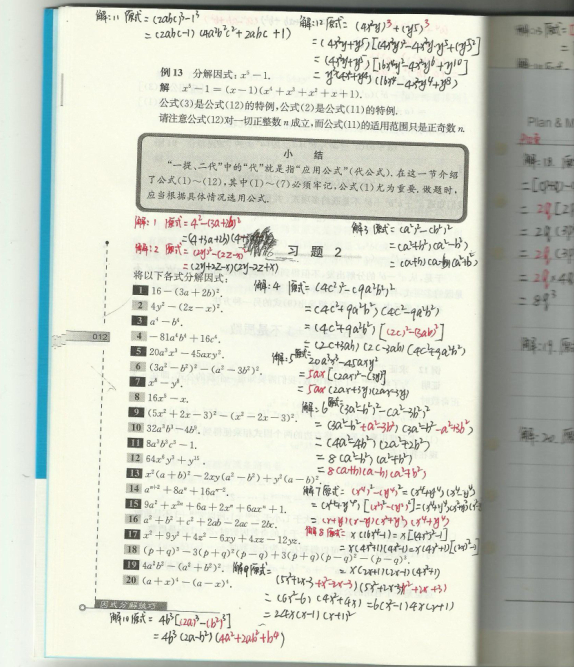 解:11 原式=(2abc)³-1³
=(2abc-1)(4a²b²c²+2abc+1)
解:12 原式=(4x²y)³+(y⁵)³
=(4x²y+y⁵)[(4x²y)²-4x²y·y⁵+(y⁵)²]
=(4x²y+y⁵)[16x⁴y²-4x²y⁶+y¹⁰]
例 13 分解因式: x⁵-1.
解 x⁵-1=(x-1)(x⁴+x³+x²+x+1).
公式(3)是公式(12)的特例,公式(2)是公式(11)的特例.
请注意公式(12)对一切正整数 n 成立,而公式(11)的适用范围只是正奇数 n.
小 结
“一提、二代”中的“代”就是指“应用公式”(代公式). 在这一节介绍
了公式(1)~(12),其中(1)~(7)必须牢记,公式(1)尤为重要. 做题时,
应当根据具体情况选用公式.
解:1 原式=4²-(3a+2b)²
=(4+3a+2b)
解:2 原式=(2y)²-(z-x)²
=(2y+z-x)(2y-z+x)
解3 原式=(a²)²-(b²)²
=(a²+b²)(a²-b²)
=(a+b)(a-b)(a²+b²)
习 题 2
将以下各式分解因式:
1 16-(3a+2b)².
2 4y²-(2z-x)².
3 a⁴-b⁴.
4 -81a⁴b⁴+16c⁴.
5 20a³x³-45axy².
6 (3a²-b²)²-(a²-3b²)².
7 x⁸-y⁸.
8 16x⁵-x.
9 (5x²+2x-3)²-(x²-2x-3)².
10 32a³b³-4b⁹.
11 8a³b³c³-1.
12 64x⁶y³+y¹⁵.
13 x²(a+b)²-2xy(a²-b²)+y²(a-b)².
14 aⁿ⁺²+8aⁿ+16aⁿ⁻².
15 9a²+x²ⁿ+6a+2xⁿ+6axⁿ+1.
16 a²+b²+c²+2ab-2ac-2bc.
17 x²+9y²+4z²-6xy+4xz-12yz.
18 (p+q)³-3(p+q)²(p-q)+3(p+q)(p-q)²-(p-q)³.
19 4a²b²-(a²+b²)².
20 (a+x)⁴-(a-x)⁴.
012
因式分解技巧
解:4 原式=(4c²)²-(9a²b²)²
=(4c²+9a²b²)(4c²-9a²b²)
=(4c²+9a²b²)[(2c)²-(3ab)²]
=(2c+3ab)(2c-3ab)(4c²+9a²b²)
解:5 原式 20a³x³-45axy²
=5ax[(2ax)²-(3y)²]
=5ax(2ax+3y)(2ax-3y)
解:6 原式(3a²-b²)²-(a²-3b²)²
=(3a²-b²+a²-3b²)(3a²-b²-a²+3b²)
=(4a²-4b²)(2a²+2b²)
=8(a²-b²)(a²+b²)
=8(a+b)(a-b)(a²+b²)
解7 原式=(x⁴)²-(y⁴)²=(x⁴+y⁴)(x⁴-y⁴)
=(x+y)(x-y)(x²+y²)(x⁴+y⁴)
解8 原式=x(16x⁴-1)=x[(4x²)²-1]
=x(4x²+1)(4x²-1)=x(4x²+1)[(2x)²-1]
=x(2x+1)(2x-1)(4x²+1)
解9 原式=
(5x²+2x-3+x²-2x-3)(5x²+2x-3-x²+2x+3)
=(6x²-6)(4x²+4x)=6(x²-1)4x(x+1)
=24x(x-1)(x+1)²
解10 原式=4b³[(2a)³-(b²)³]
=4b³(2a-b²)(4a²+2ab²+b⁴)